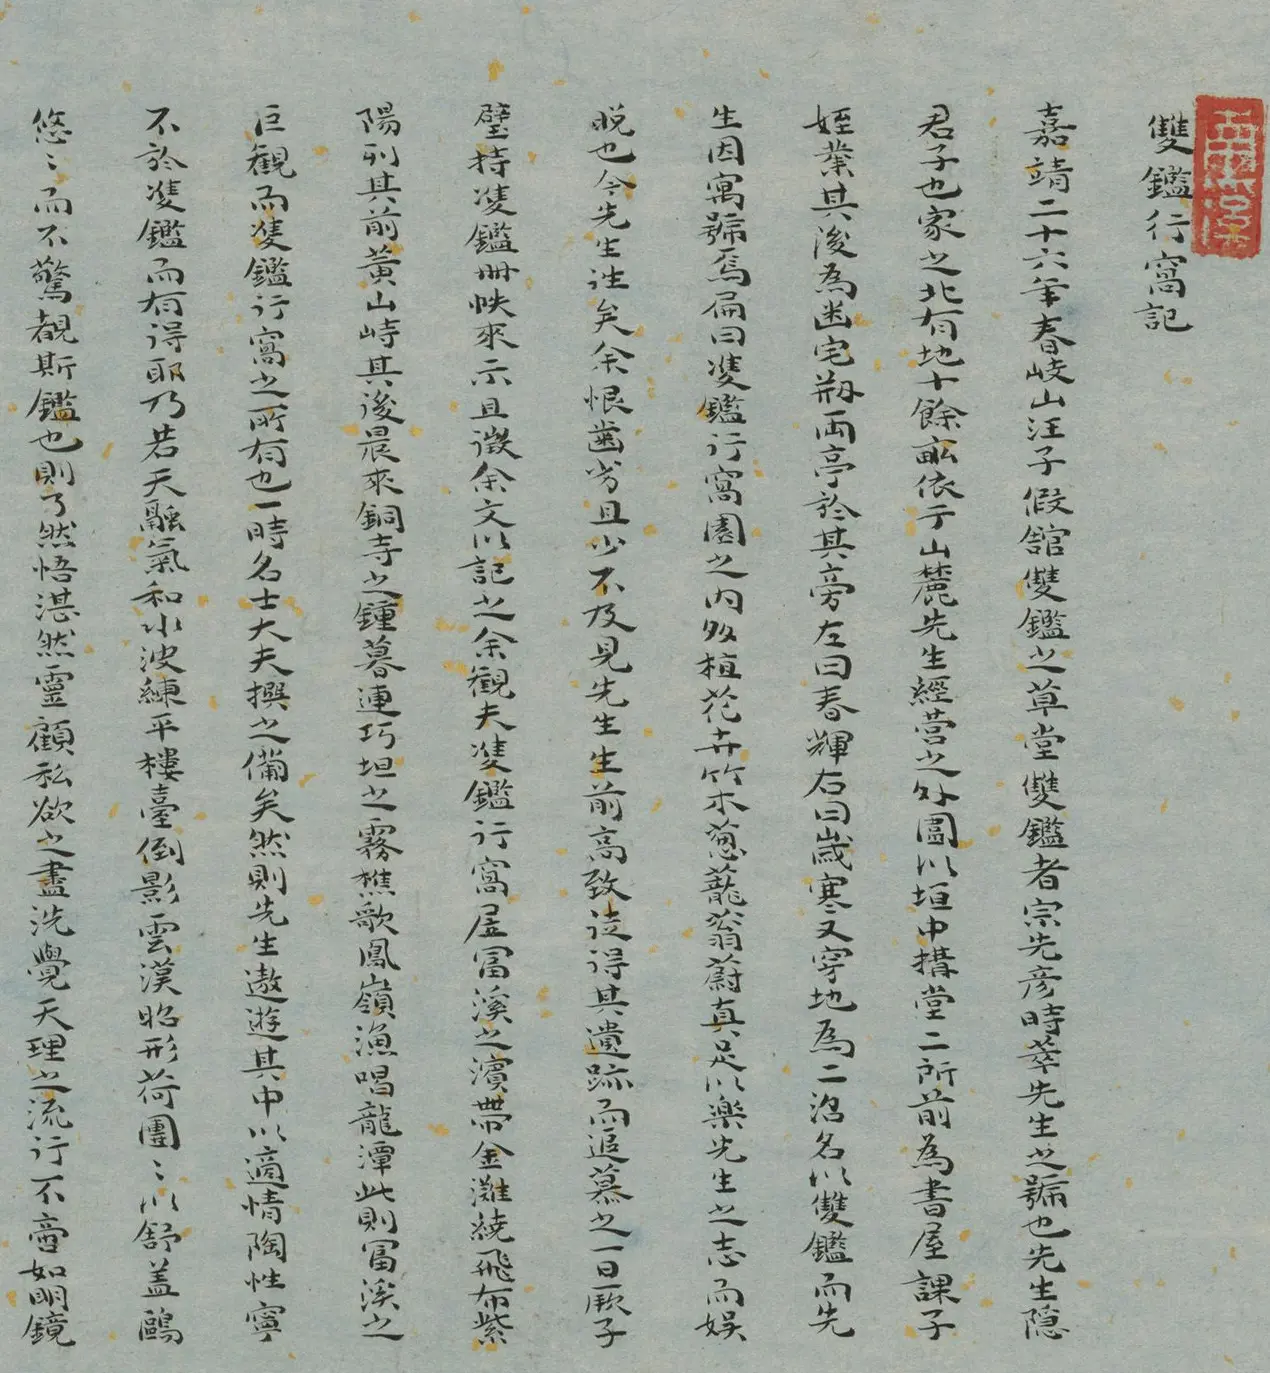 雙鑑行窩記
嘉靖二十六年春岐山汪子假館雙鑑之草堂雙鑑者宗先彥時萃先生之號也先生隱
君子也家之北有地十餘畝依于山麓先生經營之外圍以垣中搆堂二所前為書屋課子
姪業其後為幽宅剙兩亭於其旁左曰春輝右曰歲寒又穿地為二沼名以雙鑑而先
生因寓號焉扁曰雙鑑行窩園之內多植花卉竹木蔥蘢蓊蔚真足以樂先生之志而娛
晚也今先生往矣余恨齒劣且少不及見先生生前高致徒得其遺跡而追慕之一日厥子
璧持雙鑑冊帙來示且徵余文以記之余觀夫雙鑑行窩居富溪之濱帶金灘繞飛布紫
陽列其前黃山峙其後晨來銅寺之鍾暮連巧坦之霧樵歌鳳嶺漁唱龍潭此則富溪之
巨觀而雙鑑行窩之所有也一時名士大夫撰之備矣然則先生遨遊其中以適情陶性寧
不於雙鑑而有得耶乃若天融氣和水波練平樓臺倒影雲漢昭形荷團〻以舒蓋鷗
悠〻而不驚觀斯鑑也則了然悟湛然靈顧私欲之盡洗覺天理之流行不啻如明鏡